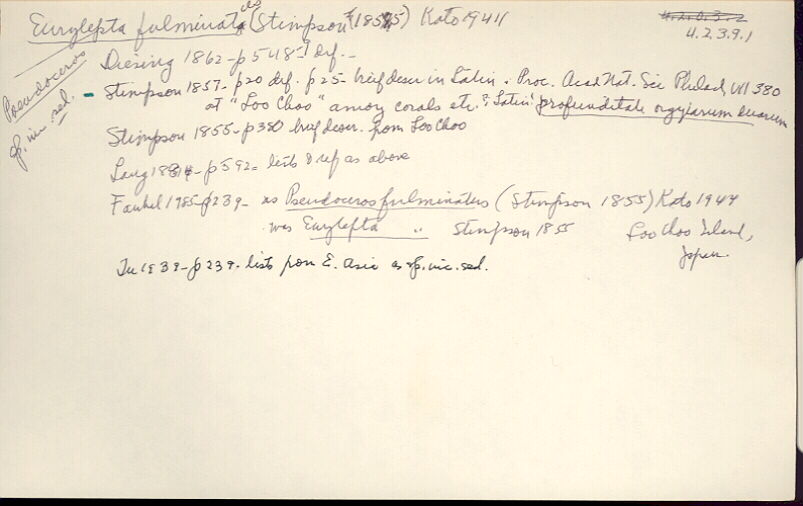 Eurylepta fulminata us (Stimpson (1855) Kato 1944
4.2.0.3.2
4.2.3.9.1
Pseudoceros
sp. inc. sed.
Diesing 1862 - p 548 - def. -
- Stimpson 1857 - p20 def. p25 - brief descr in Latin. Proc. Acad Nat. Sci Philad, VI 380
at "Loo Choo" among corals etc. & Latin: profunditate orgyiarum duarum
Stimpson 1855 - p380 brief descr. from Loo Choo
Lang 1884 - p592 - lists & ref as above
Faubel 1985 - p239 - as Pseudoceros fulminatus (Stimpson 1855) Kato 1944
was Eurylepta " Stimpson 1855 Loo Choo Island,
Japan.
Tu 1939 - p 239 - lists from E. Asia as sp. inc. sed.